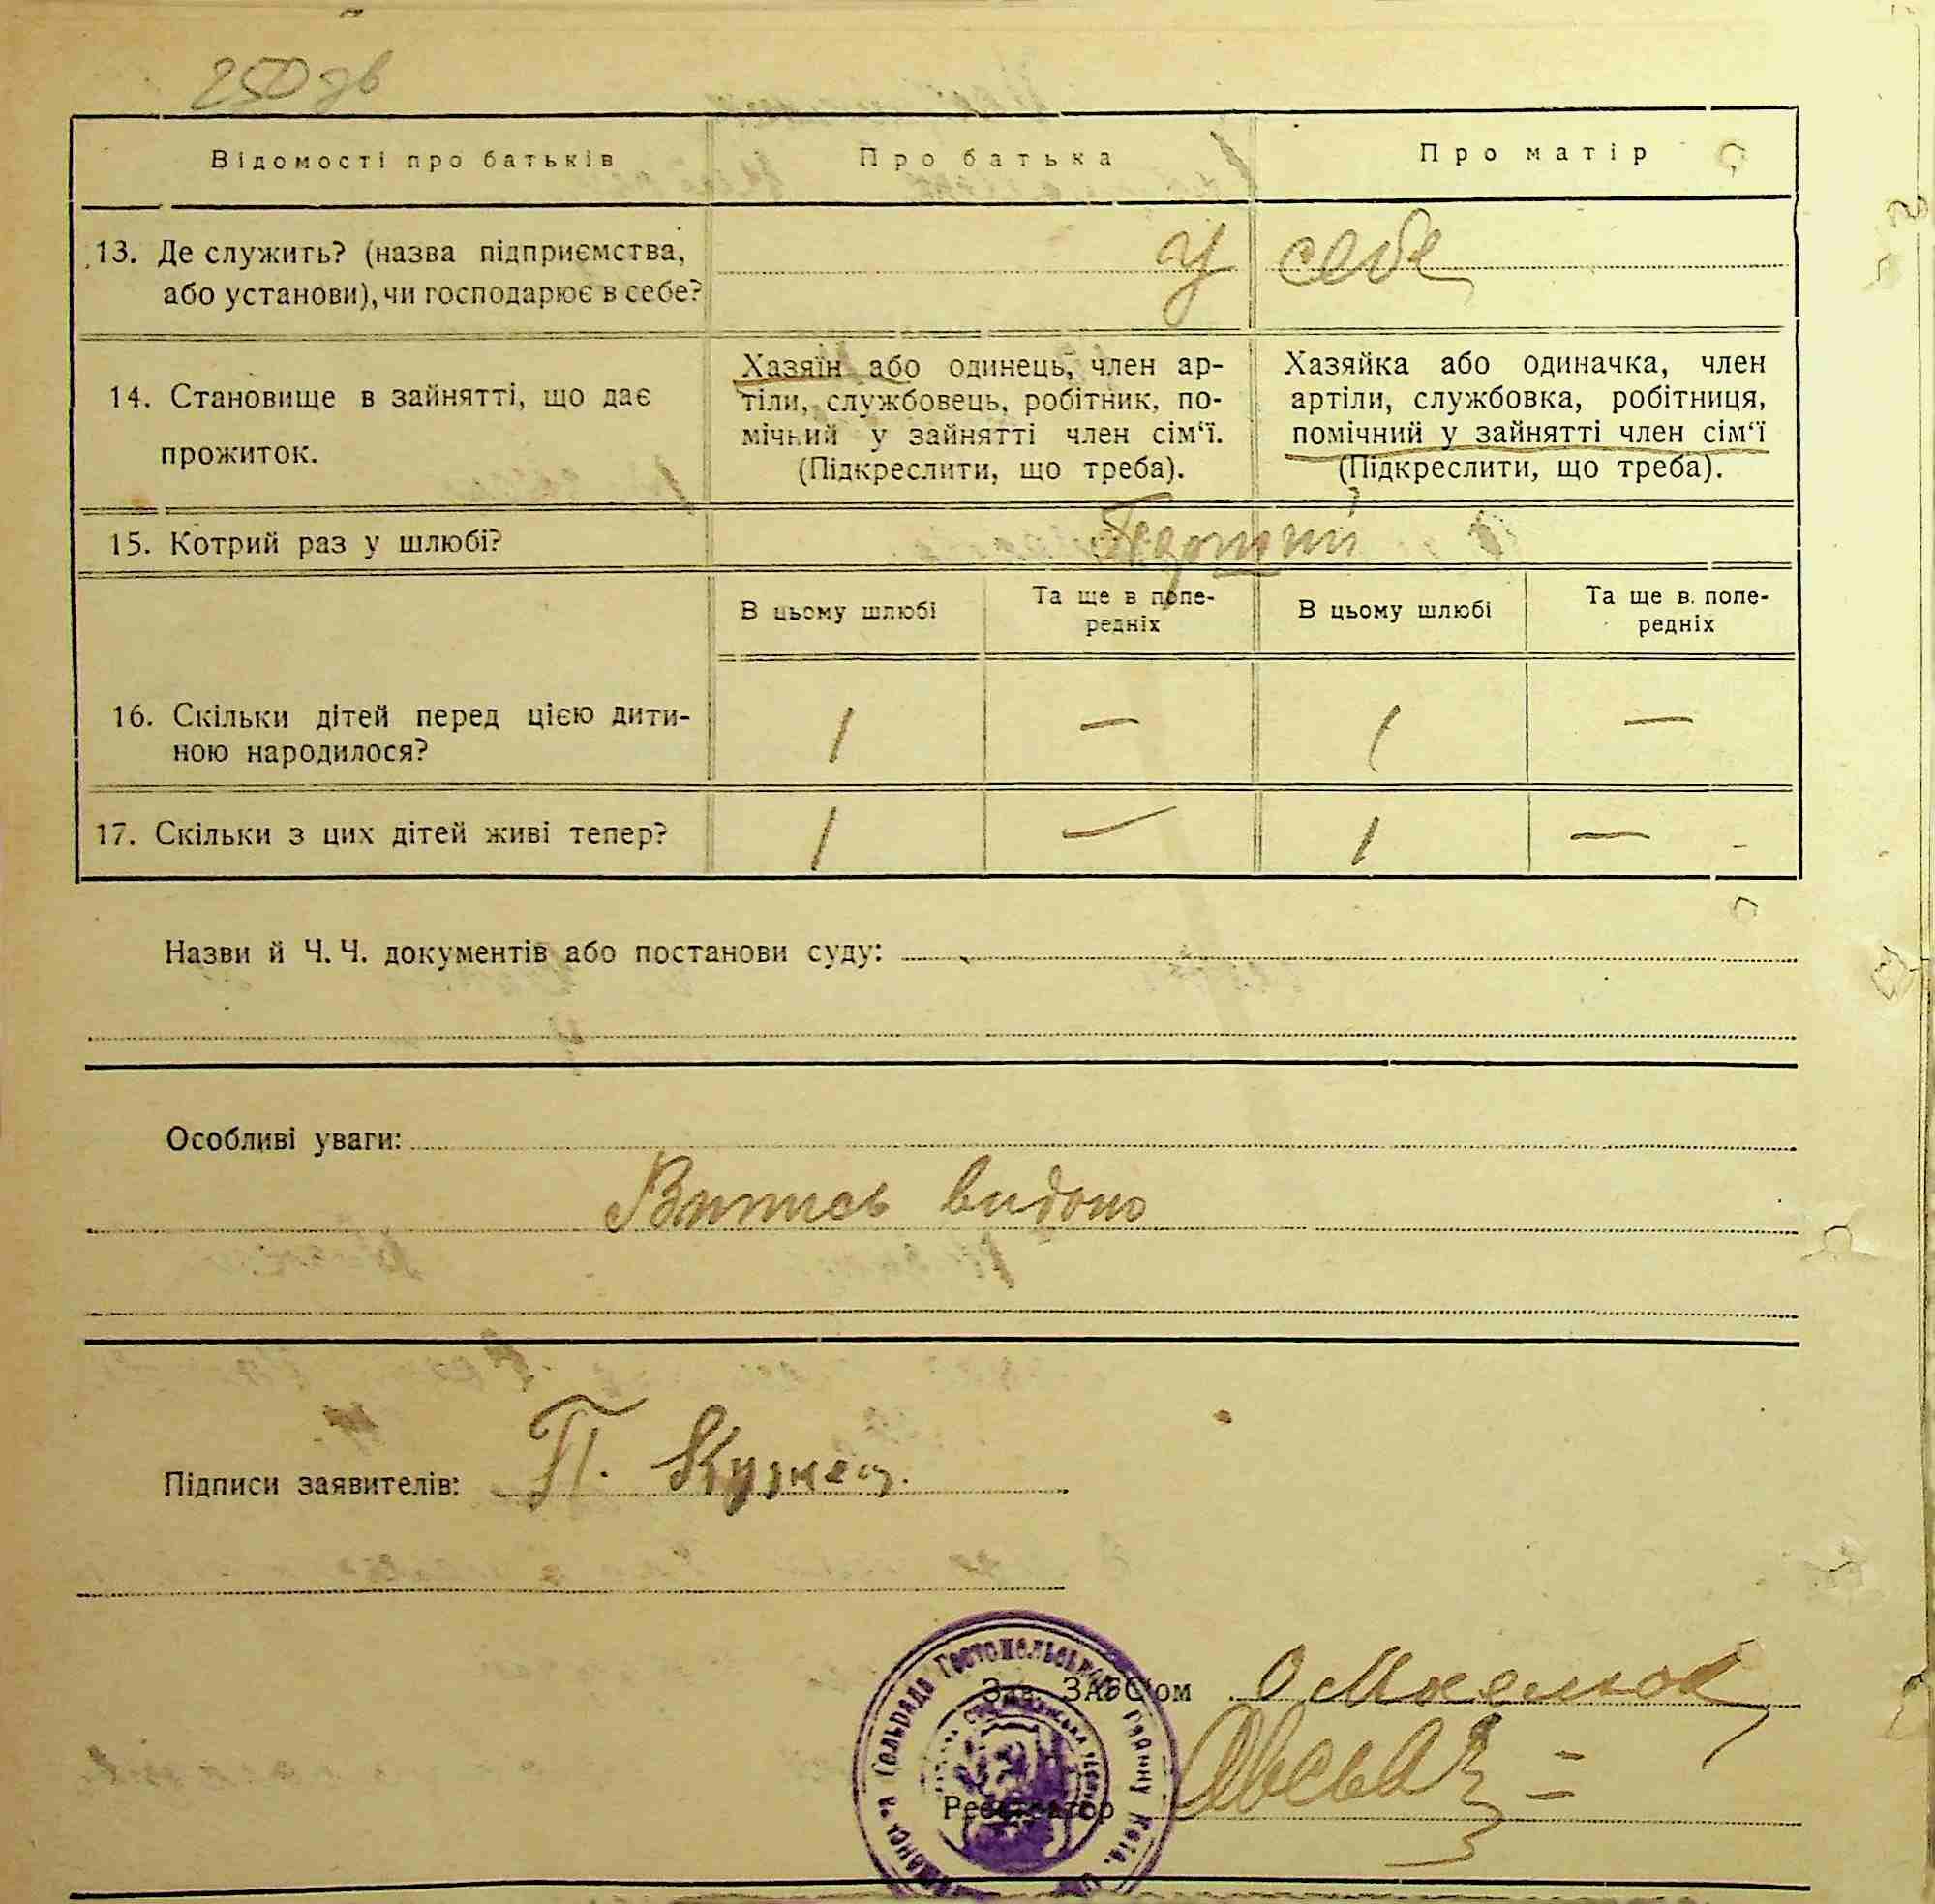 250 зв
Відомості про батьків Про батька Про матір
13. Де служить? (назва підприємства, у себе
або установи), чи господарює в себе?
Хазяїн або одинець, член ар- Хазяйка або одиначка, член
14. Становище в зайнятті, що дає тіли, службовець, робітник, по- артіли, службовка, робітниця,
мічний у зайнятті член сім‘ї. помічний у зайнятті член сім‘ї
прожиток. (Підкреслити, що треба). (Підкреслити, що треба).
15. Котрий раз у шлюбі?
В цьому шлюбі Та ще в попе- В цьому шлюбі Та ще в. попе-
редніх редніх
16. Скільки дітей перед цією дити- 1 — 1 —
ною народилося?
17. Скільки з цих дітей живі тепер? 1 — 1 —
Назви й Ч. Ч. документів або постанови суду:
Особливі уваги:
Випись видано
Підписи заявителів: П. Кузнец.
Зав. ЗАГС'ом
Реєстратор
Сельрада Гостомельського району Київ.